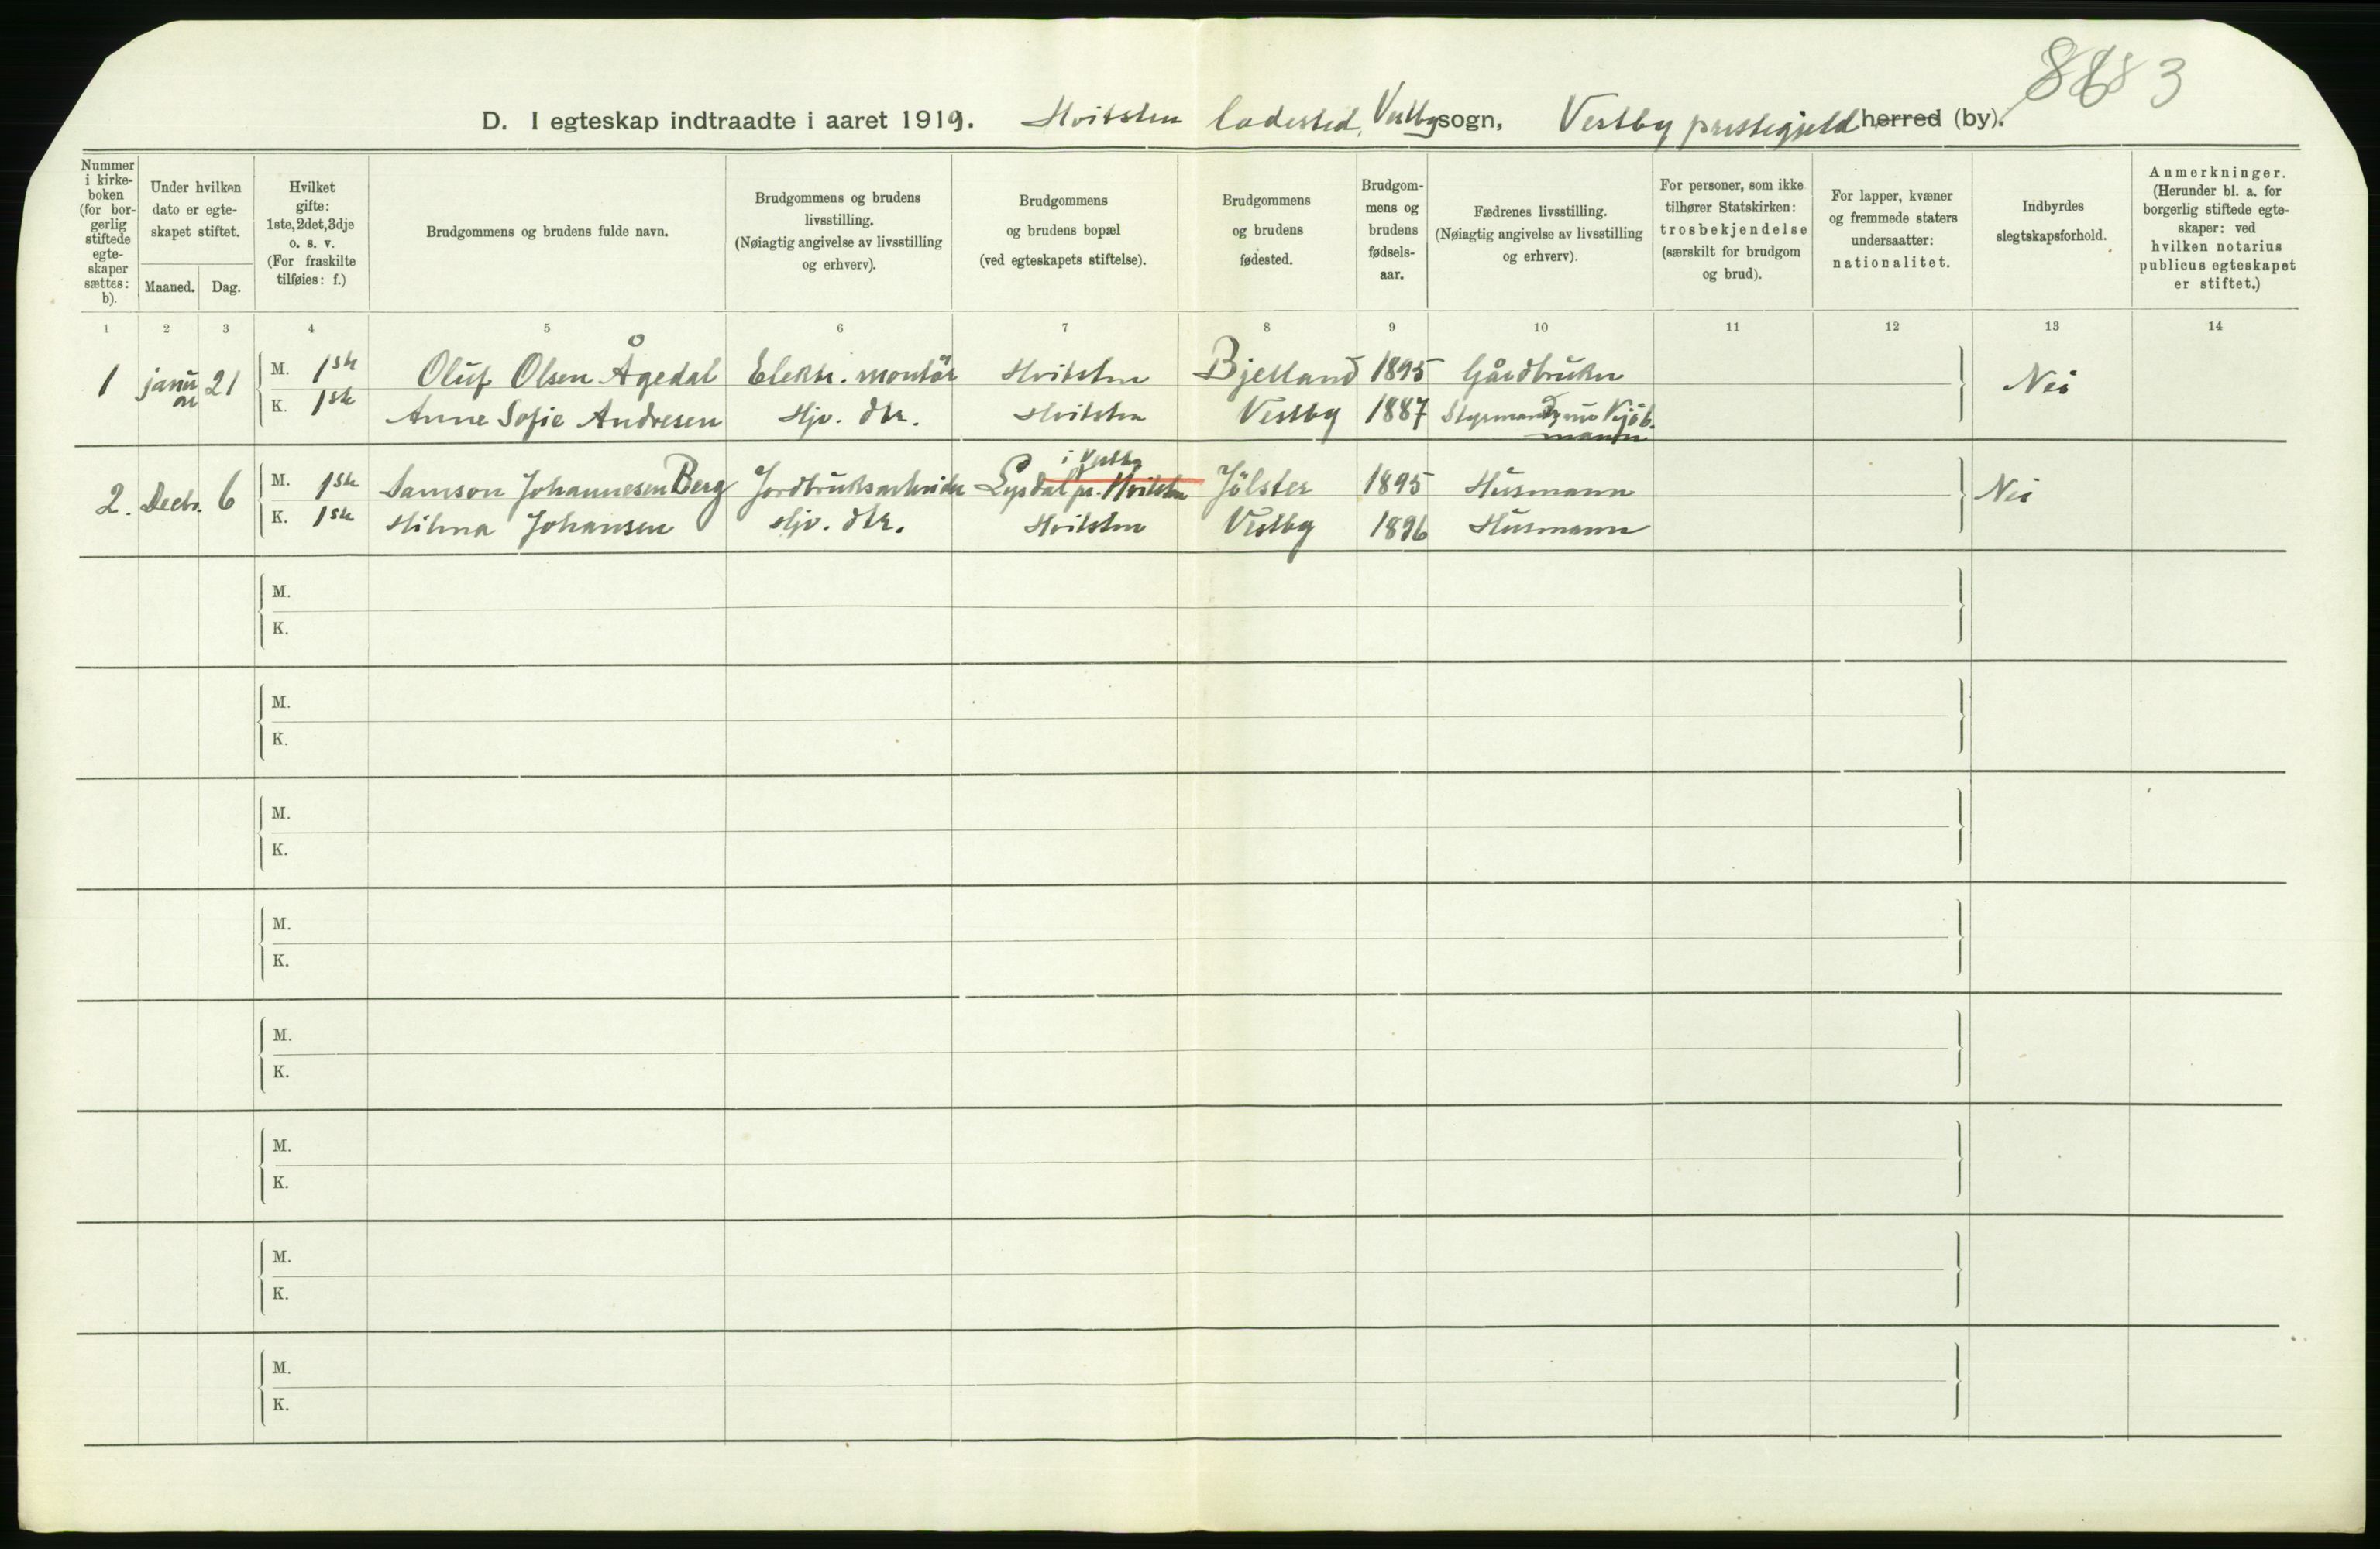 8883
D. I egteskap indtraadte i aaret 1919. Hvitsten ladested, Vestby sogn, Vestby prestegjeld herred (by).
Nummer i kirke-boken (for bor-gerlig stiftede egte-skaper sættes: b).
Under hvilken dato er egte-skapet stiftet.
Maaned. Dag.
Hvilket gifte: 1ste, 2det, 3dje o. s. v. (For fraskilte tilføies: f.)
Brudgommens og brudens fulde navn.
Brudgommens og brudens livsstilling. (Nøiagtig angivelse av livsstilling og erhverv).
Brudgommens og brudens bopæl (ved egteskapets stiftelse).
Brudgommens og brudens fødested.
Brudgom-mens og brudens fødsels-aar.
Fædrenes livsstilling. (Nøiagtig angivelse av livsstilling og erhverv).
For personer, som ikke tilhører Statskirken: trosbekjendelse (særskilt for brudgom og brud).
For lapper, kvæner og fremmede staters undersaatter: nationalitet.
Indbyrdes slegtskapsforhold.
Anmerkninger. (Herunder bl. a. for borgerlig stiftede egte-skaper: ved hvilken notarius publicus egteskapet er stiftet.)
1 2 3 4 5 6 7 8 9 10 11 12 13 14
1 januar 21 M. 1ste Oluf Olsen Ågedal Elektr. montör Hvitsten Bjelland 1895 Gårdbruker Nei
K. 1ste Anne Sofie Andresen Hjv. dtr. Hvitsten Vestby 1887 Styrmand, nu Kjöb.mann
2. Decbr. 6 M. 1ste Samson Johannesen Berg Jordbruksarbeider Lysdal pr. Hvitsten i Vestby Jölster 1895 Husmann Nei
K. 1ste Hilma Johansen Hjv. dtr. Hvitsten Vestby 1896 Husmann
M.
K.
M.
K.
M.
K.
M.
K.
M.
K.
M.
K.
M.
K.
M.
K.